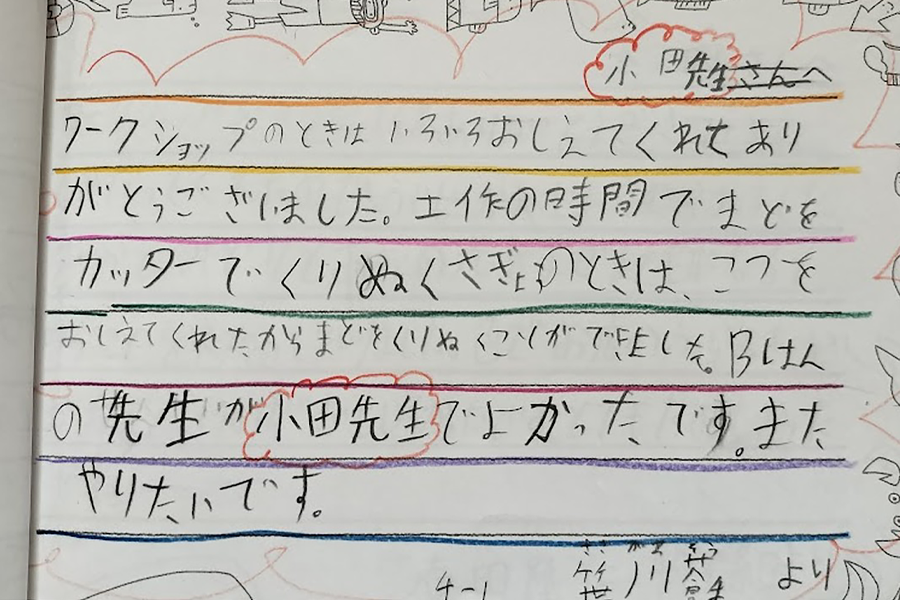 小田先生さんへ
ワークショップのときはいろいろおしえてくれてあり
がとうございました。工作の時間でまどを
カッターでくりぬくさぎょうのときは、こつを
おしえてくれたからまどをくりぬくことができました。Bはん
の先生が小田先生でよかったです。また
やりたいです。
4-1 川 より